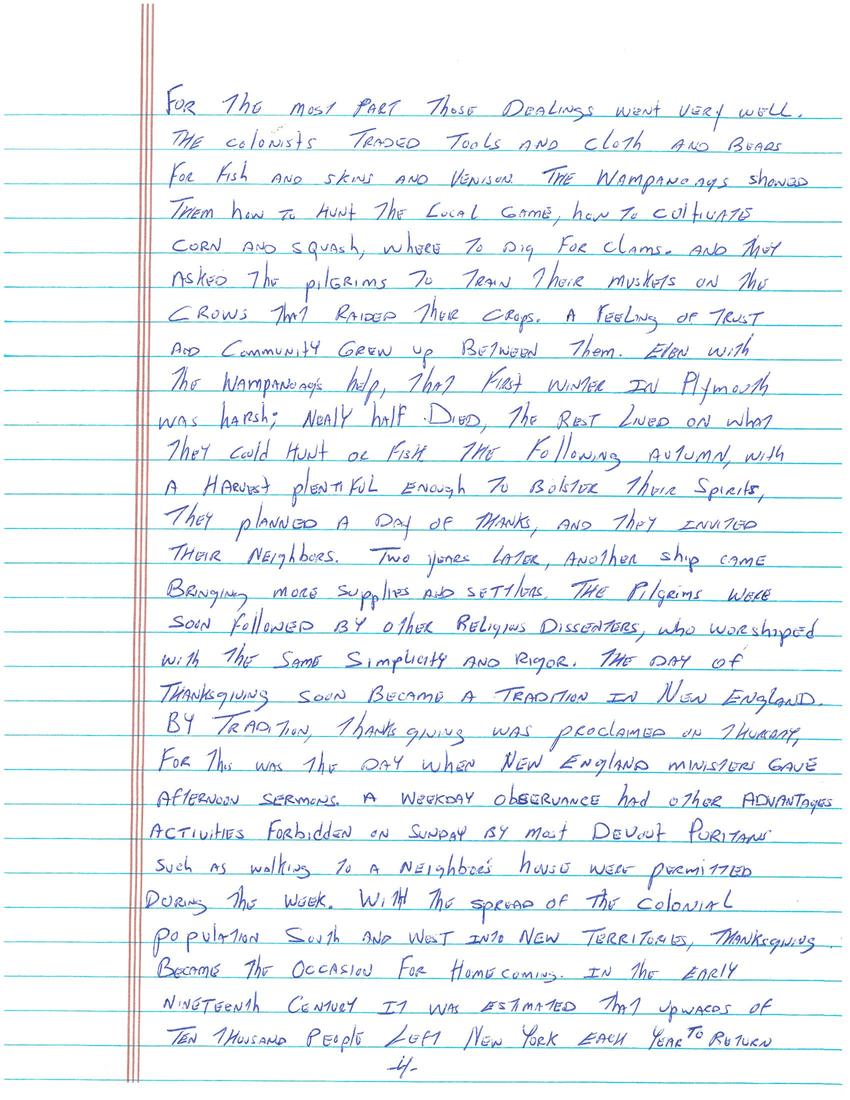 FOR THE MOST PART THOSE DEALINGS WENT VERY WELL.
THE COLONISTS TRADED TOOLS AND CLOTH AND BEADS
FOR FISH AND SKINS AND VENISON. THE WAMPANOAGS SHOWED
THEM HOW TO HUNT THE LOCAL GAME, HOW TO CULTIVATE
CORN AND SQUASH, WHERE TO DIG FOR CLAMS. AND THEY
ASKED THE PILGRIMS TO TRAIN THEIR MUSKETS ON THE
CROWS THAT RAIDED THEIR CROPS. A FEELING OF TRUST
AND COMMUNITY GREW UP BETWEEN THEM. EVEN WITH
THE WAMPANOAGS HELP, THAT FIRST WINTER IN PLYMOUTH
WAS HARSH; NEALY HALF DIED, THE REST LIVED ON WHAT
THEY COULD HUNT OR FISH. THE FOLLOWING AUTUMN, WITH
A HARVEST PLENTIFUL ENOUGH TO BOLSTER THEIR SPIRITS,
THEY PLANNED A DAY OF THANKS, AND THEY INVITED
THEIR NEIGHBORS. TWO YEARS LATER, ANOTHER SHIP CAME
BRINGING MORE SUPPLIES AND SETTLERS. THE PILGRIMS WERE
SOON FOLLOWED BY OTHER RELIGIUS DISSENTERS, WHO WORSHIPED
WITH THE SAME SIMPLICITY AND RIGOR. THE DAY OF
THANKSGIVING SOON BECAME A TRADITION IN NEW ENGLAND.
BY TRADITION, THANKS GIVING WAS PROCLAIMED ON THURSDAY,
FOR THIS WAS THE DAY WHEN NEW ENGLAND MINISTERS GAVE
AFTERNOON SERMONS. A WEEKDAY OBSERVANCE HAD OTHER ADVANTAGES
ACTIVITIES FORBIDDEN ON SUNDAY BY MOST DEVOUT PURITANS
SUCH AS WALKING TO A NEIGHBOR'S HOUSE WERE PERMITTED
DURING THE WEEK. WITH THE SPREAD OF THE COLONIAL
POPULATION SOUTH AND WEST INTO NEW TERRITORIES, THANKSGIVING
BECAME THE OCCASION FOR HOMECOMING. IN THE EARLY
NINETEENTH CENTURY IT WAS ESTIMATED THAT UPWARDS OF
TEN THOUSAND PEOPLE LEFT NEW YORK EACH YEAR TO RETURN